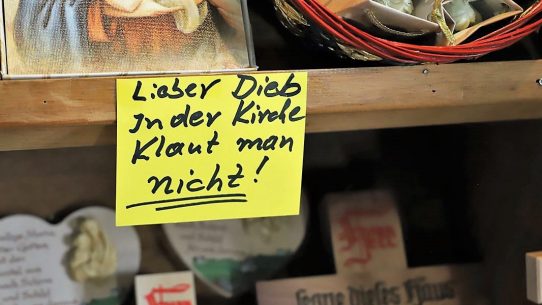 Lieber Dieb
In der Kirche
Klaut man
nicht!
Herr
segne dieses Haus